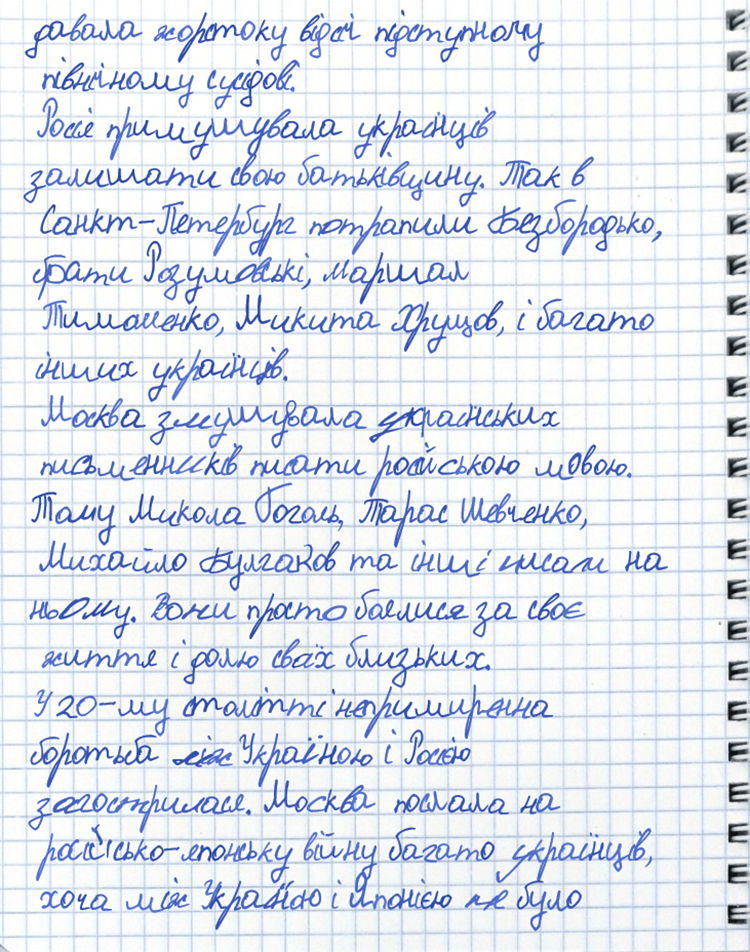 давала жорстоку відсіч підступному
північному сусідові.
Россія примушувала українців
залишати свою батьківщину. Так в
Санкт-Петербург потрапили Безбородько,
брати Розумовські, маршал
Тимошенко, Микита Хрущов, і багато
інших українців.
Москва змушувала українських
письменників писати російською мовою.
Тому Микола Гоголь, Тарас Шевченко,
Михайло Булгаков та інші писали на
ньому. Вони просто боялися за своє
життя і долю своїх близьких.
У 20-му столітті непримиренна
боротьба між Україною і Россією
загострилася. Москва послала на
російсько-японську війну багато українців,
хоча між Україною і Японією не було